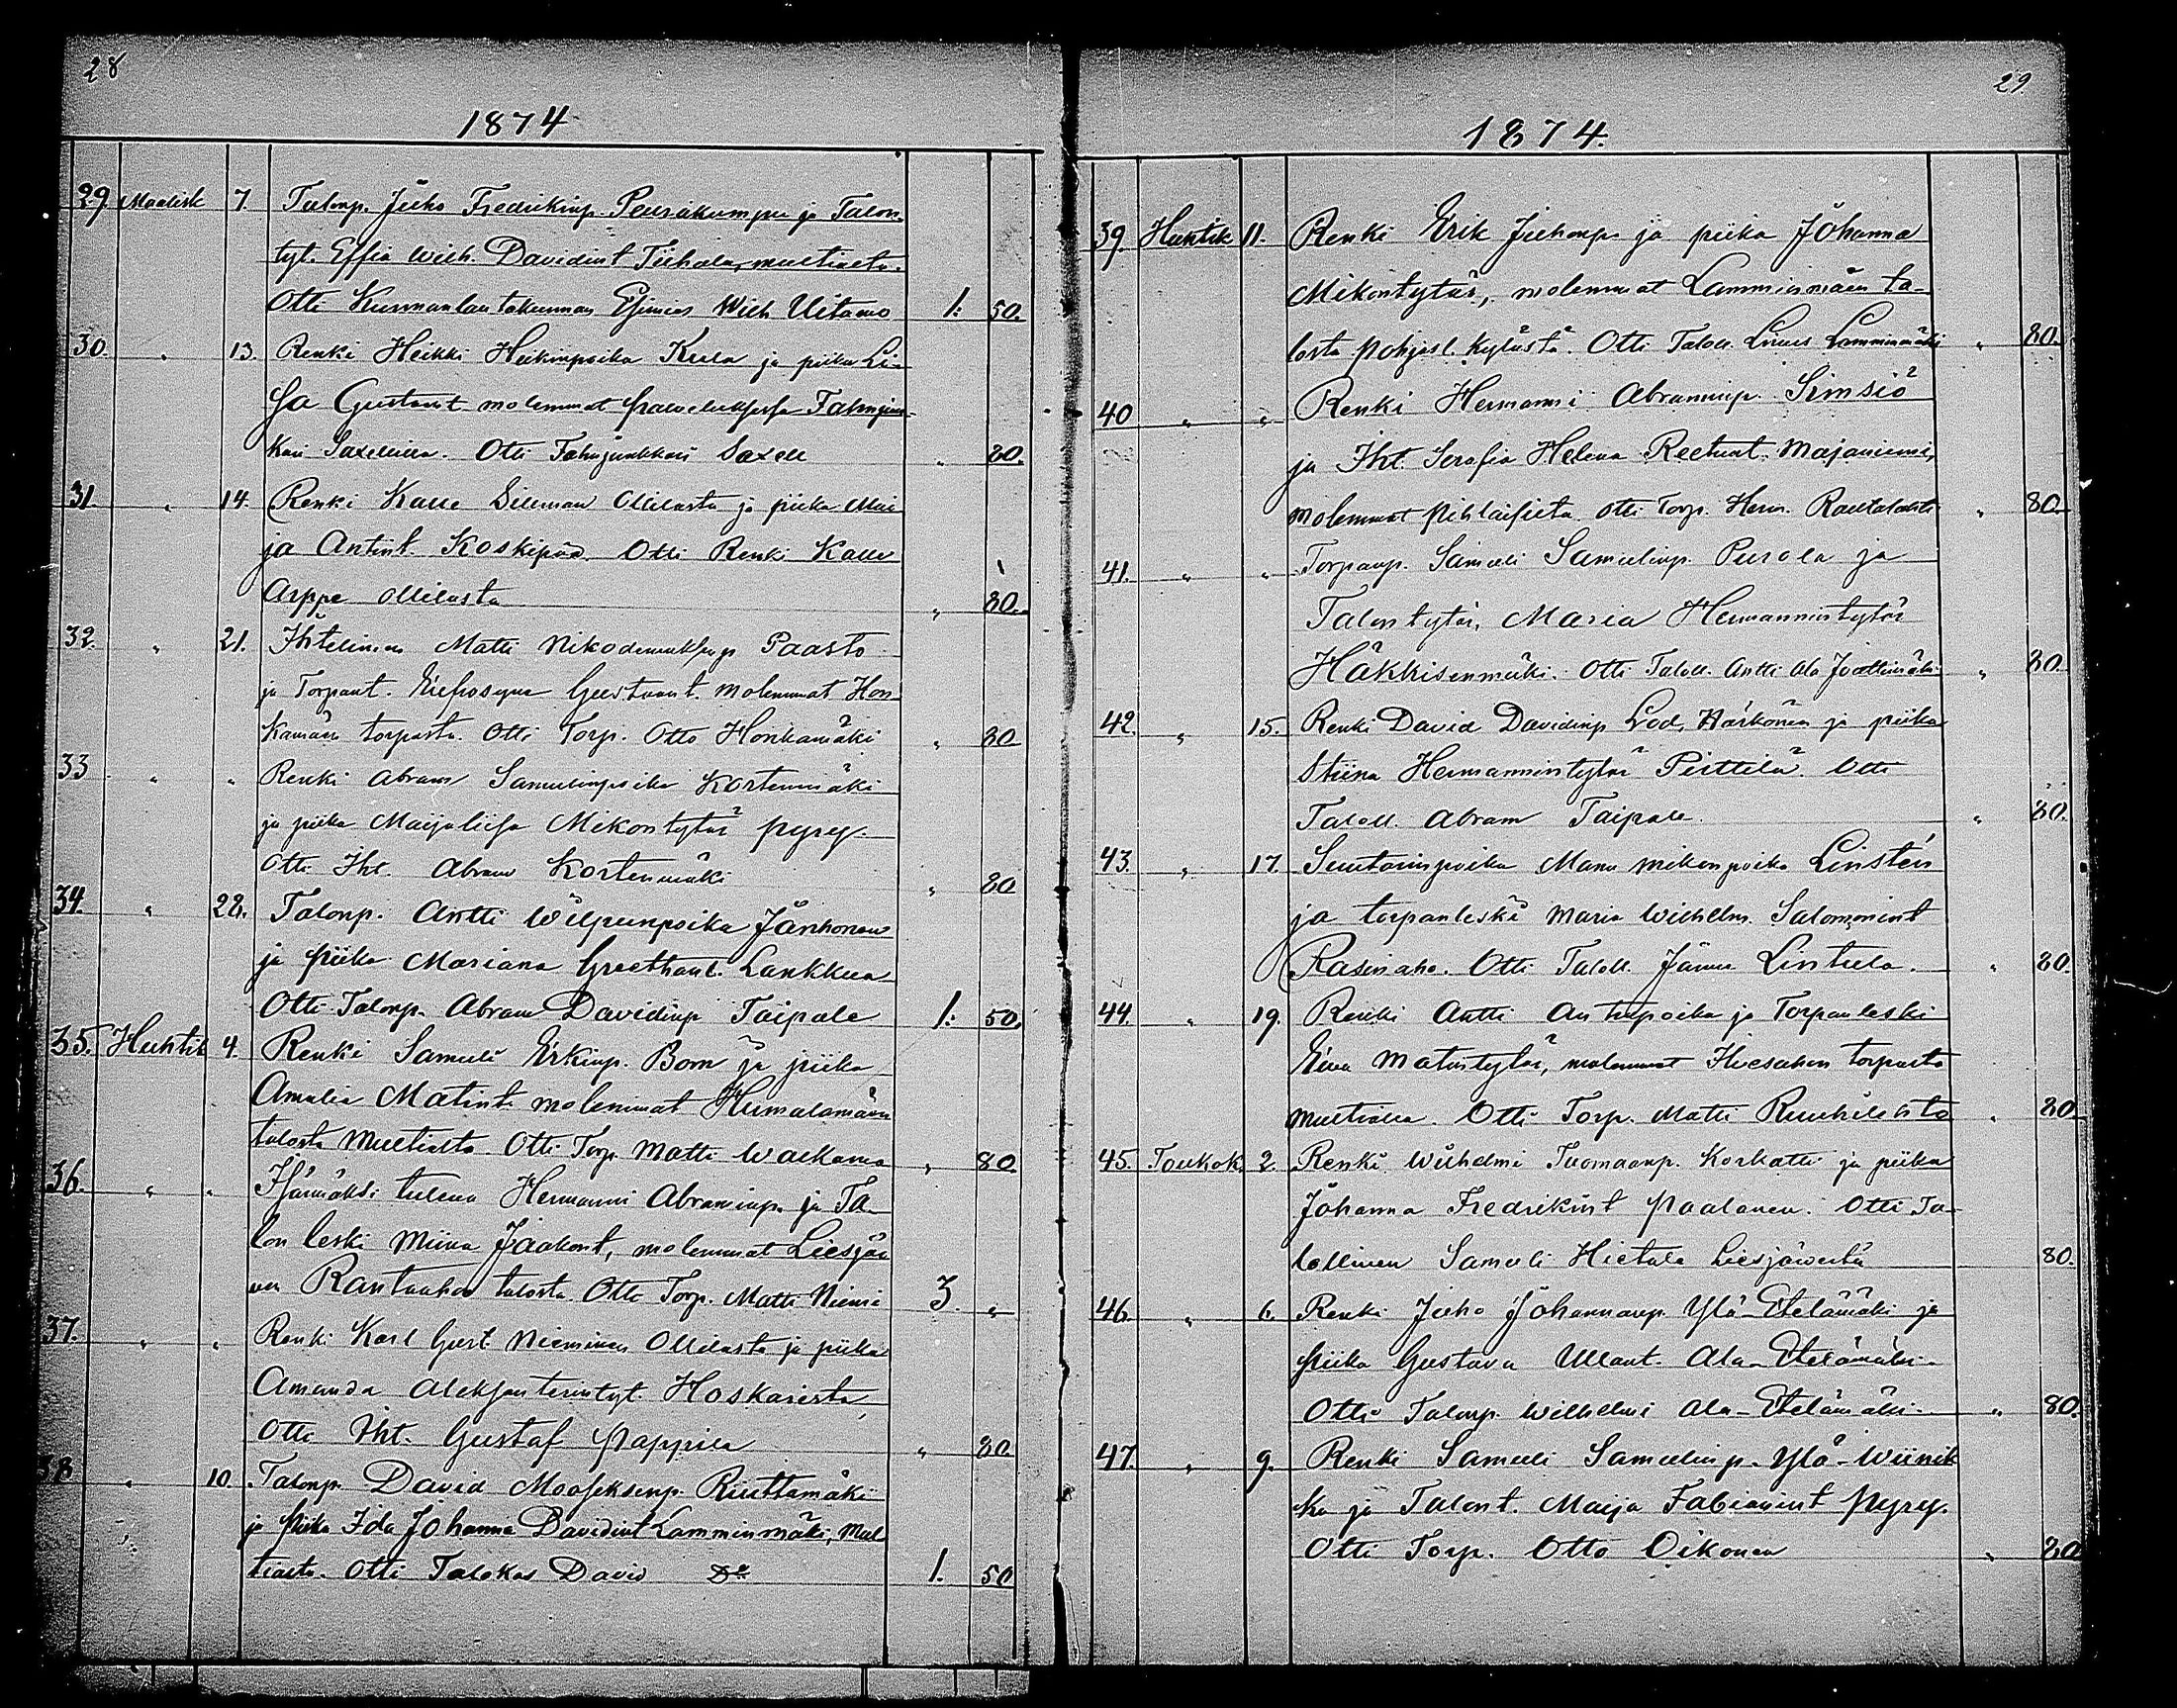 28
1874
29. Maalisk 7. Talonp. Juho Fredrikinp. Peurakumpu ja Talon
tyt. Effia Wilh. Davidint Tuhala, multialta.
Otti Kunnanlautakunnan Esimies Wilh Uitamo 1: 50.
30. " 13. Renki Heikki Heikinpoika Kula ja piika Li-
sa Gustavt. molemmat palveluksessa Fahnjun-
kari Saxellilla. Otti Fahnjunkkari Saxell " 80.
31. " 14. Renki Kalle Silleman Ollilasta ja piika Mai
ja Antint. Koskipää. Otti Renki Kalle
Arppe Ollilasta " 80.
32. " 21. Ihtelinen Matti Nikodemuksenp Paasto
ja Torpant. Eufrosyna Gustavnt. molemmat Hon
kamäen torpasta. Otti Torp. Otto Honkamäki " 80
33 " " Renki Abram Samulinpoika Kortenmäki
ja piika Maijaliisa Mikontytär pyrey.
Otti Iht. Abram Kortenmäki " 80
34. " 28. Talonp. Antti Wilpunpoika Jänhonen
ja piika Mariana Greethant. Lankkua
Otti Talonp. Abram Davidinp Taipale 1: 50.
35. Huhtik 4. Renki Samuli Erkinp. Bom ja piika
Amalia Matint. molemmat Humalamäen
talosta Multialta. Otti Torp. Matti Walkama " 80.
36. " " Isännäksi tuleva Hermanni Abraminp. ja Ta-
lon leski Miina Jaakont, molemmat Liesjär
ven Rantaahon talosta. Otti Torp. Matti Niemi 3. "
37. " " Renki Karl Gust. Nieminen Ollilasta ja piika
Amanda Aleksanterintyt. Hoskarista,
Otti Iht. Gustaf Pappila " 80
38 " 10. Talonp. David Mooseksenp. Riuttamäki
ja piika Ida Johanna Davidint Lamminmäki, Mul
tialta. Otti Talokas David Do 1. 50
29.
1874.
39. Huhtik 11. Renki Erik Juhonp. ja piika Johanna
Mikontytär, molemmat Lamminmäen ta-
losta pohjasl. kylästä. Otti Taloll. Linus Lamminmäki " 80.
40 " " Renki Hermanni Abraminp. Simsiö
ja Iht. Serafia Helena Reetunt. Majaniemi,
molemmat pihlaisista. Otti Torp. Herm. Rautalahti " 80.
41. " " Torpanp. Samuli Samulinp. Purola ja
Talontytär, Maria Hermannintytär
Häkkisenmäki. Otti Taloll. Antti Ala Joattimäki " 80.
42. " 15. Renki David Davidinp Lod, Härkönen ja piika
Stiina Hermannintytär Pirttilä. Otti
Taloll. Abram Taipale " 80.
43. " 17. Suutarinpoika Manu Mikonpoika Linstén
ja torpanleski Maria Wilhelm. Salomonint
Rasinaho. Otti Taloll. Janne Lintula. " 80.
44. " 19. Renki Antti Antinpoika ja Torpanleski
Eeva Matintytär, molemmat Hiesahon torpasta
multialla. Otti Torp. Matti Ruuhilehto " 80.
45. Toukok. 2. Renki Wilhelmi Tuomaanp. Korkatti ja piika
Johanna Fredrikint Paalanen. Otti Ta-
lollinen Samuli Hietala Liesjärveltä 80.
46. " 6. Renki Juho Johannanp. Ylä-Etelämäki ja
piika Gustava Ullant. Ala-Etelämäki.
Otti Talonp. Wilhelmi Ala-Etelämäki. " 80.
47. " 9. Renki Samuli Samulinp. Ylä-Wiinik
ka ja Talont. Maija Fabianint Pyrey.
Otti Torp. Otto Oikonen " 80